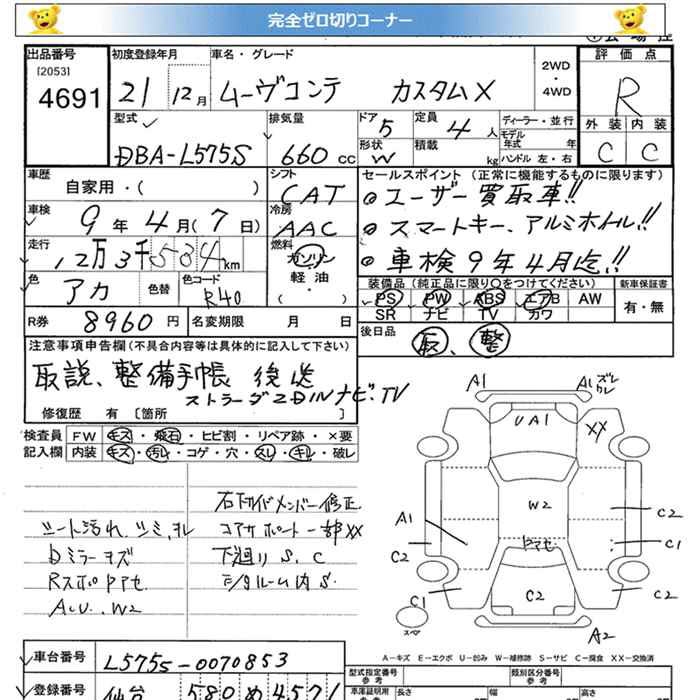 完全ゼロ切りコーナー
出品番号
[2053]
4691
初度登録年月
21 12月
車名・グレード
ムーヴコンテ カスタムX
2WD
・
4WD
評価点
R
外装 内装
C C
型式
DBA-L575S
排気量
660 cc
ドア
5
形状
W
定員
4 人
積載
kg
ディーラー・並行
モデル
年式 年
ハンドル 左・右
車歴
自家用・( )
シフト
CAT
車検
9年4月(7日)
冷房
AAC
走行
12万3千534km
燃料
ガソリン
・
軽油
・
( )
色
アカ
色替
色コード
R40
R券
8960円
名変期限 月 日
セールスポイント (正常に機能するものに限ります)
◎ユーザー買取車!!
◎スマートキー、アルミホイル!!
◎車検9年4月迄!!
装備品 (純正品に限り○をつけてください)
PS PW ABS エアB AW
SR ナビ TV カワ
新車保証書
有・無
後日品
取、整
注意事項申告欄(不具合内容等は具体的に記入して下さい)
取説、整備手帳 後送
ストラーダ2DINナビ・TV
修復歴 有 [箇所 ]
検査員
記入欄
FW キズ・飛石・ヒビ割・リペア跡・×要
内装 キズ・汚レ・コゲ・穴・スレ・キレ・破レ
シート汚れ、シミ、スレ
Dミラーキズ
RスポDアセ
ALU. W2
右下サイドメンバー修正
コアサポート一部XX
下廻りS、C
A1
A1 ズレ
ワレ
UA1
XX
W2
A1
C2
C2
C1
Dアセ
C2
C1
C2
A2
スペア
A-キズ E-エクボ U-凹み W-補修跡 S-サビ C-腐食 XX-交換済
車台番号
L575S-0070853
登録番号
仙台 580 め4571
型式指定番号
参考
類別区分番号
参考
車庫証明用
参考
長さ
幅
高さ